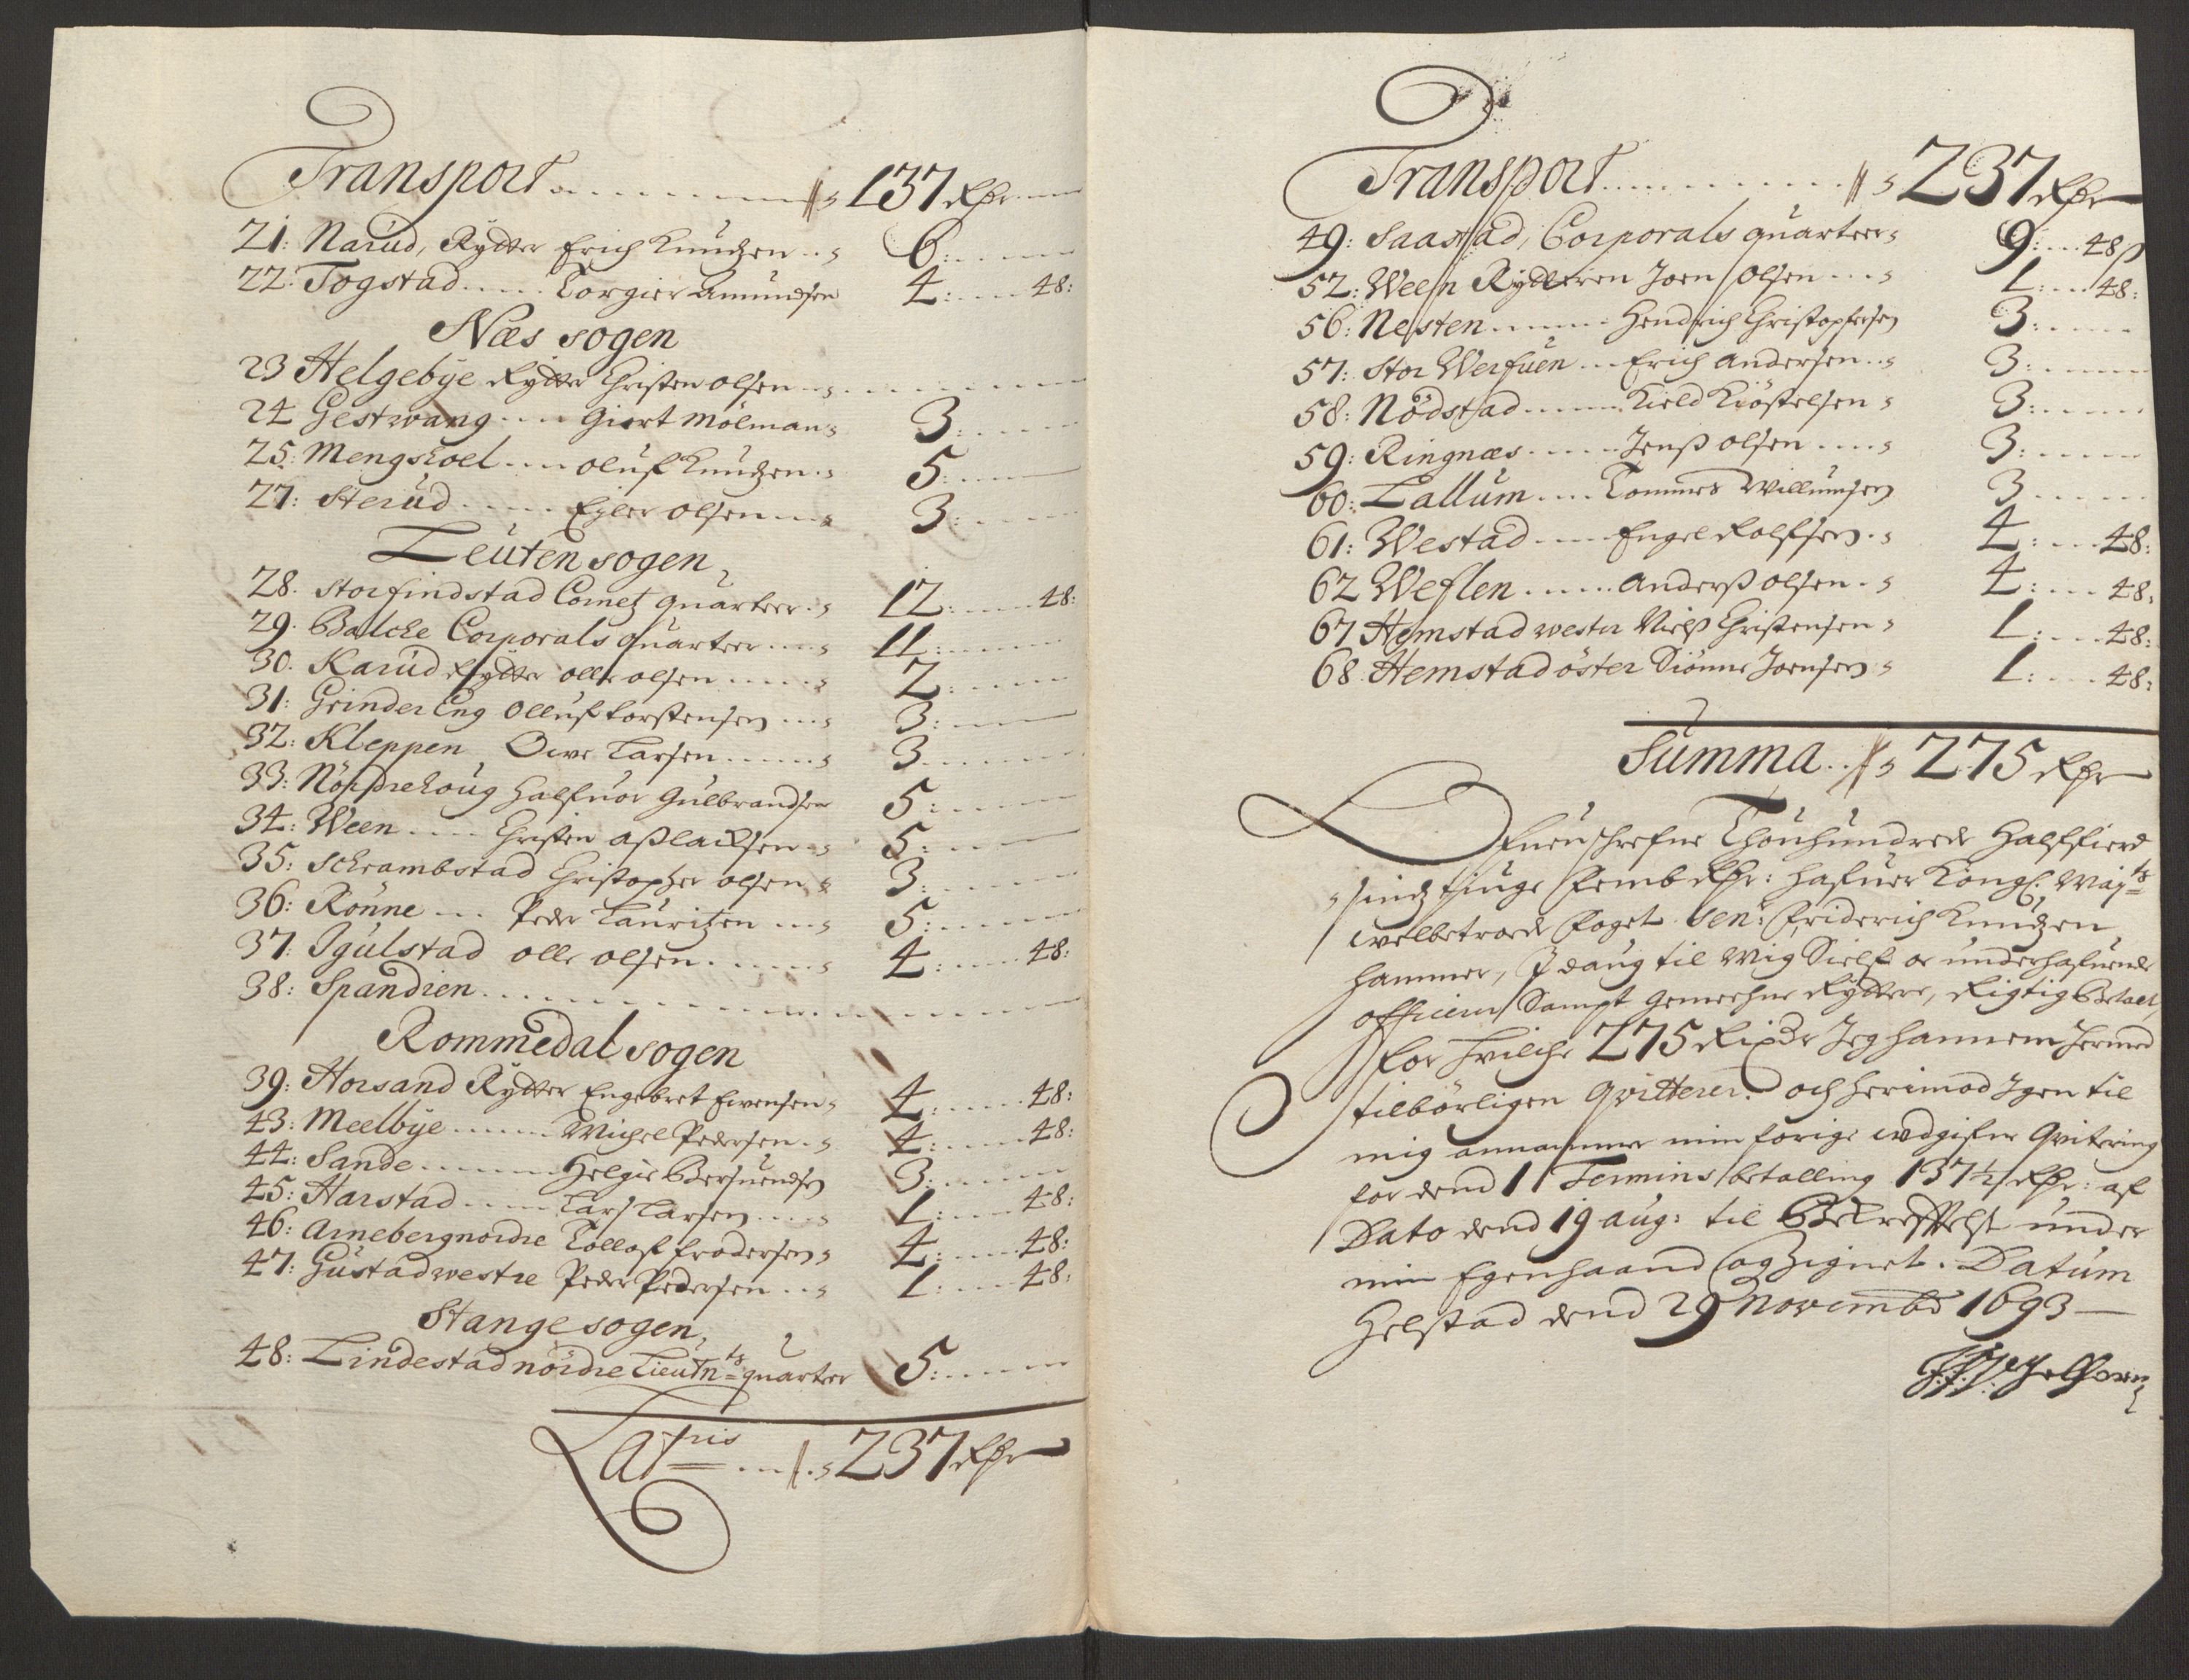 Transport ... 137 Rdr
21: Narud, Rytter Erich Knudzen 6:
22: Togstad Torgier Amundsen 4: 48:
Næs sogen
23 Helgebÿe Rytter Christen olsen
24 Gestwang Giert Mölman 3:
25: Mengshoel oluf Knudzen 5:
27: Sterud Eyler olsen 3:
Leuten sogen
28. Storfindstad Cornetz quarteer 12: 48:
29. Balcke Corporals quarteer 11:
30. Karud Rytter olle olsen 2:
31: Grinder Eng olluf torstensen 3:
32: Kleppen Owe Larsen 3
33: Nordrehoug Halfuor Gulbrandsen 5:
34: Ween Christen Aslacksen 5:
35: Schrambstad Christopher olsen 3:
36: Rönne Peder Lauritzen 5:
37: Igulstad olle olsen 4: 48:
38: Spandien
Rommedal sogen
39: Horsand Rytter Engebret Ewensen 4: 48:
43: Meelbÿe Michel Pedersen 4: 48:
44: Sande Helgie Bersuendsen 3:
45: Harstad Lars Larsen 1: 48:
46: Arnebergnordre Tollof Frodersen 4: 48:
47: Gustadwestre Peder Pedersen 1: 48:
Stange sogen
48: Lindestad nordre Lieutnts quarteer 5:
Latris 237 Rdr
Transport 237 Rdr
49: Saastad, Corporals quarteer 9: 48 ß
52: Ween Rytteren Joen Olsen 1: 48:
56: Nesten Hendrich Christophersen 3:
57: Stor Werfuen Erich Andersen 3:
58: Nödstad Kield Kiöstelsen 3:
59: Ringnæs Jenß olsen 3:
60: Lallum Tommes Willumsen 3
61: Westad Engel Rolfsen 4: 48:
62 Weflen Anderß olsen 4: 48:
67 Hemstad wester Nielß Christensen 1: 48:
68 Hemstad öster Siönne Joensen 1: 48:
Summa 275 Rdr
Ofuenschrefne Thouhundrede Halffierd
sindz tiuge femb Rdr: hafuer Kongl. Mayts
welbetroede foget Sen: Friderich Knudzen
hammer, I daug til mig Sielf oc underhafuende
officierer Sampt gemeehne Ryttere, Rigtig Betalt,
for hvilche 275 Rixdr Jeg hannem hermed
tilbörligen qvitterer. och herimod Igen til
mig annammer min forige udgifne Qvitering
for dend 1 Termins betalling 137½ Rdr: af
Dato dend 19 aug: til Bekreftelse under
min Egenhaand og Zignet. Datum
Helstad dend 29 Novembr 1693